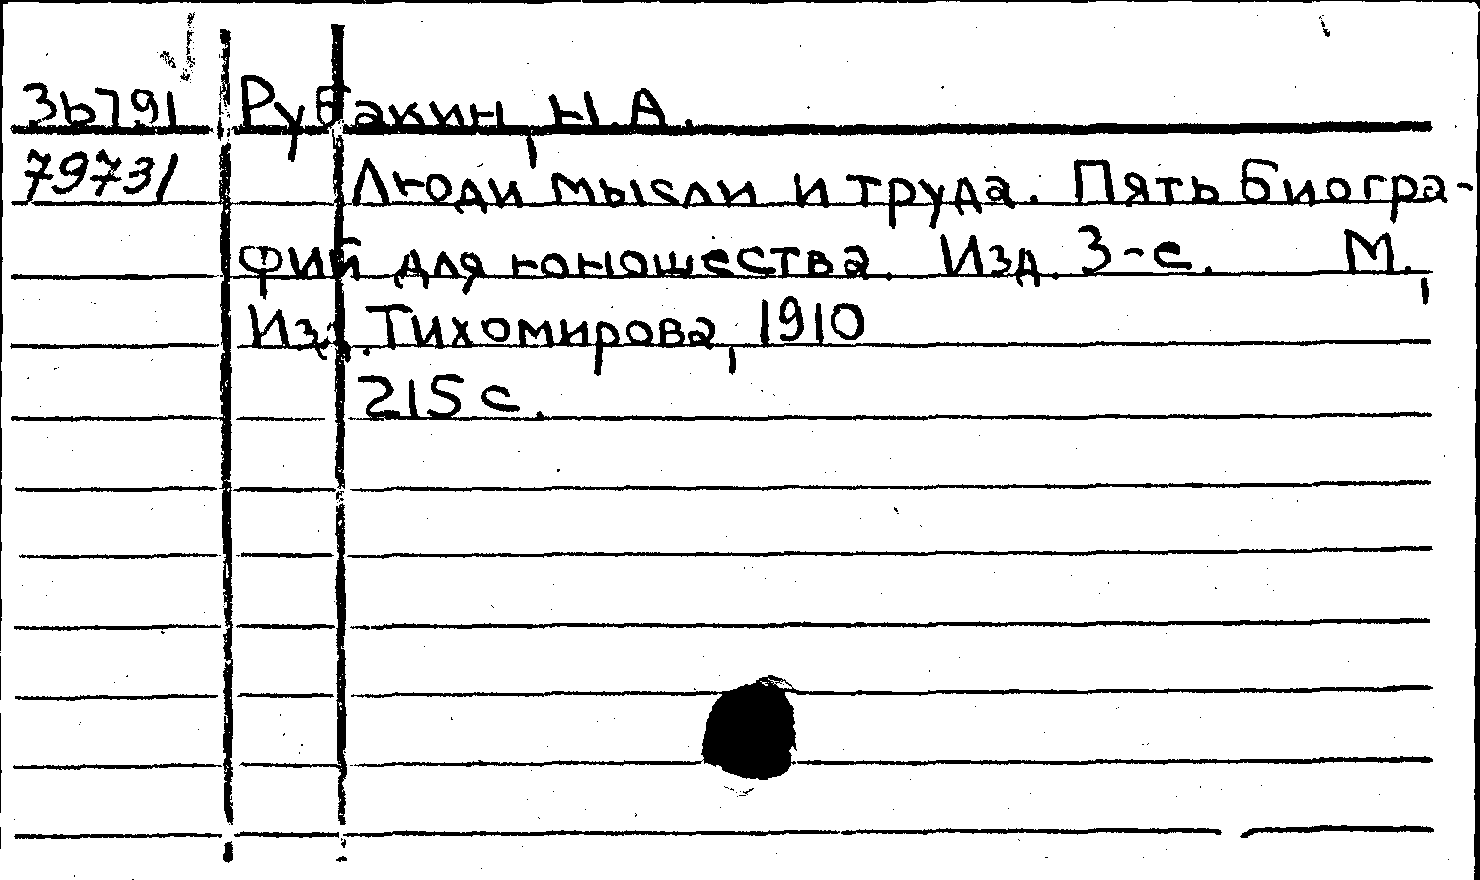 3b791 Рубакин, Н.А.
79731 Люди мысли и труда. Пять биогра-
фий для юношества. Изд. 3-е. М.,
Изд. Тихомирова, 1910
215 с.